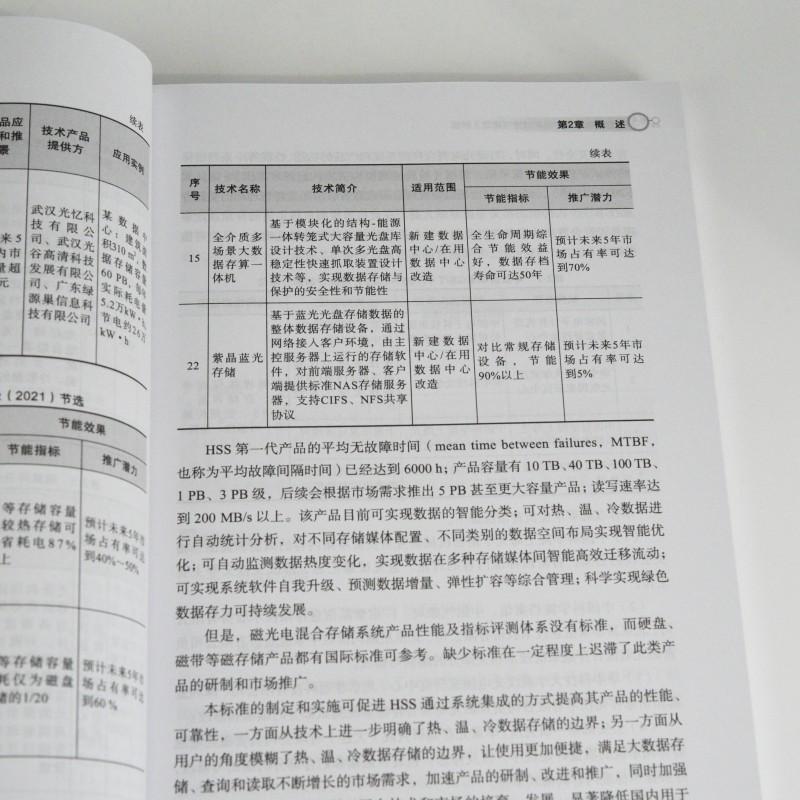 续表
品应
和推
景
技术产品
提供方
应用实例
来5
内市
量超
元
武汉光忆科
技有限公
司、武汉光
谷高清科技
发展有限公
司、广东绿
源巢信息科
技有限公司
某数据中
心：建筑面
积310 m²,
据存储容量
60 PB,
实际耗电量
5.2万kW·h,
节电约26万
kW·h
（2021）节选
节能效果
节能指标
推广潜力
等存储容量
较热存储可
省耗电87%
上
预计未来5年市
场占有率可达
到40%~50%
等存储容量
耗仅为磁盘
储的1/20
预计未来5年市
场占有率可达
到60%
第2章 概 述
续表
序号
技术名称
技术简介
适用范围
节能效果
节能指标
推广潜力
15
全介质多
场景大数
据存算一
体机
基于模块化的结构-能源
一体转笼式大容量光盘库
设计技术、单次多光盘高
稳定性快速抓取装置设计
技术等，实现数据存储与
保护的安全性和节能性
新建数据
中心/在用
数据中心
改造
全生命周期综
合节能效益
好，数据存档
寿命可达50年
预计未来5年市
场占有率可达
到70%
22
紫晶蓝光
存储
基于蓝光光盘存储数据的
整体数据存储设备，通过
网络接入客户环境，由主
控服务器上运行的存储软
件，对前端服务器、客户
端提供标准NAS存储服务
器，支持CIFS、NFS共享
协议
新建数据
中心/在用
数据中心
改造
对比常规存储
设备，节能
90%以上
预计未来5年市
场占有率可达
到5%
HSS 第一代产品的平均无故障时间（mean time between failures，MTBF，
也称为平均故障间隔时间）已经达到 6000 h；产品容量有 10 TB、40 TB、100 TB、
1 PB、3 PB 级，后续会根据市场需求推出 5 PB 甚至更大容量产品；读写速率达
到 200 MB/s 以上。该产品目前可实现数据的智能分类；可对热、温、冷数据进
行自动统计分析，对不同存储媒体配置、不同类别的数据空间布局实现智能优
化；可自动监测数据热度变化，实现数据在多种存储媒体间智能高效迁移流动；
可实现系统软件自我升级、预测数据增量、弹性扩容等综合管理；科学实现绿色
数据存力可持续发展。
但是，磁光电混合存储系统产品性能及指标评测体系没有标准，而硬盘、
磁带等磁存储产品都有国际标准可参考。缺少标准在一定程度上迟滞了此类产
品的研制和市场推广。
本标准的制定和实施可促进 HSS 通过系统集成的方式提高其产品的性能、
可靠性，一方面从技术上进一步明确了热、温、冷数据存储的边界；另一方面从
用户的角度模糊了热、温、冷数据存储的边界，让使用更加便捷，满足大数据存
储、查询和读取不断增长的市场需求，加速产品的研制、改进和推广，同时加强